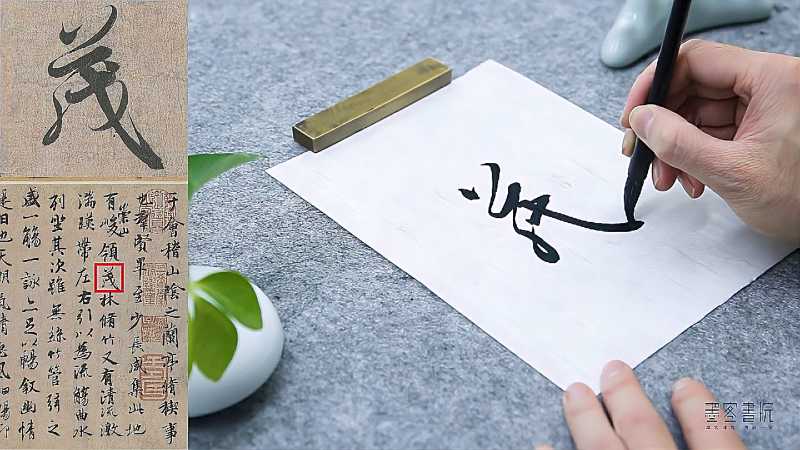 茂
于會稽山陰之蘭亭脩禊事
也羣賢畢至少長咸集此地
有崇山峻領茂林脩竹又有清流激
湍暎帶左右引以為流觴曲水
列坐其次雖無絲竹管弦之
盛一觴一詠亦足以暢叙幽情
是日也天朗氣清惠風和暢仰
茂
墨客書院